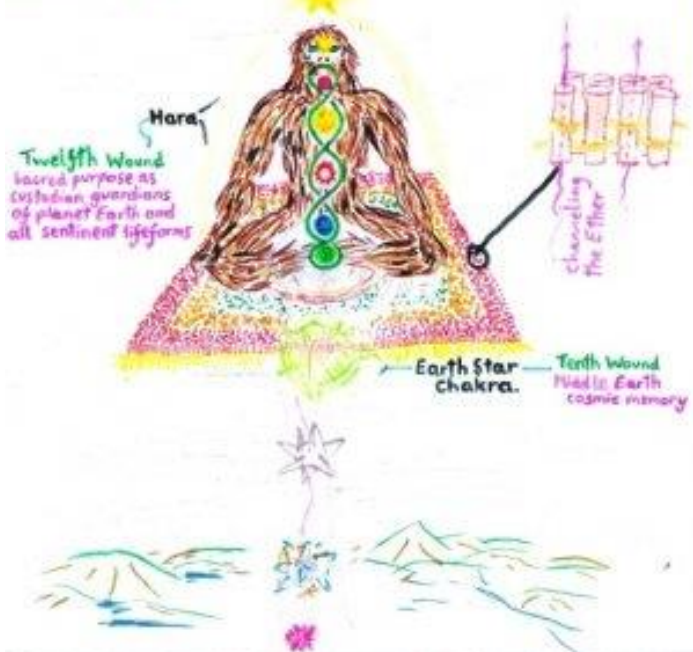 Hara,
Twelfth Wound
Sacred purpose as
custodian guardians
of planet Earth and
all sentinent lifeforms
Channeling
the Ether
Earth Star
Chakra.
Tenth Wound
Middle Earth
cosmic memory